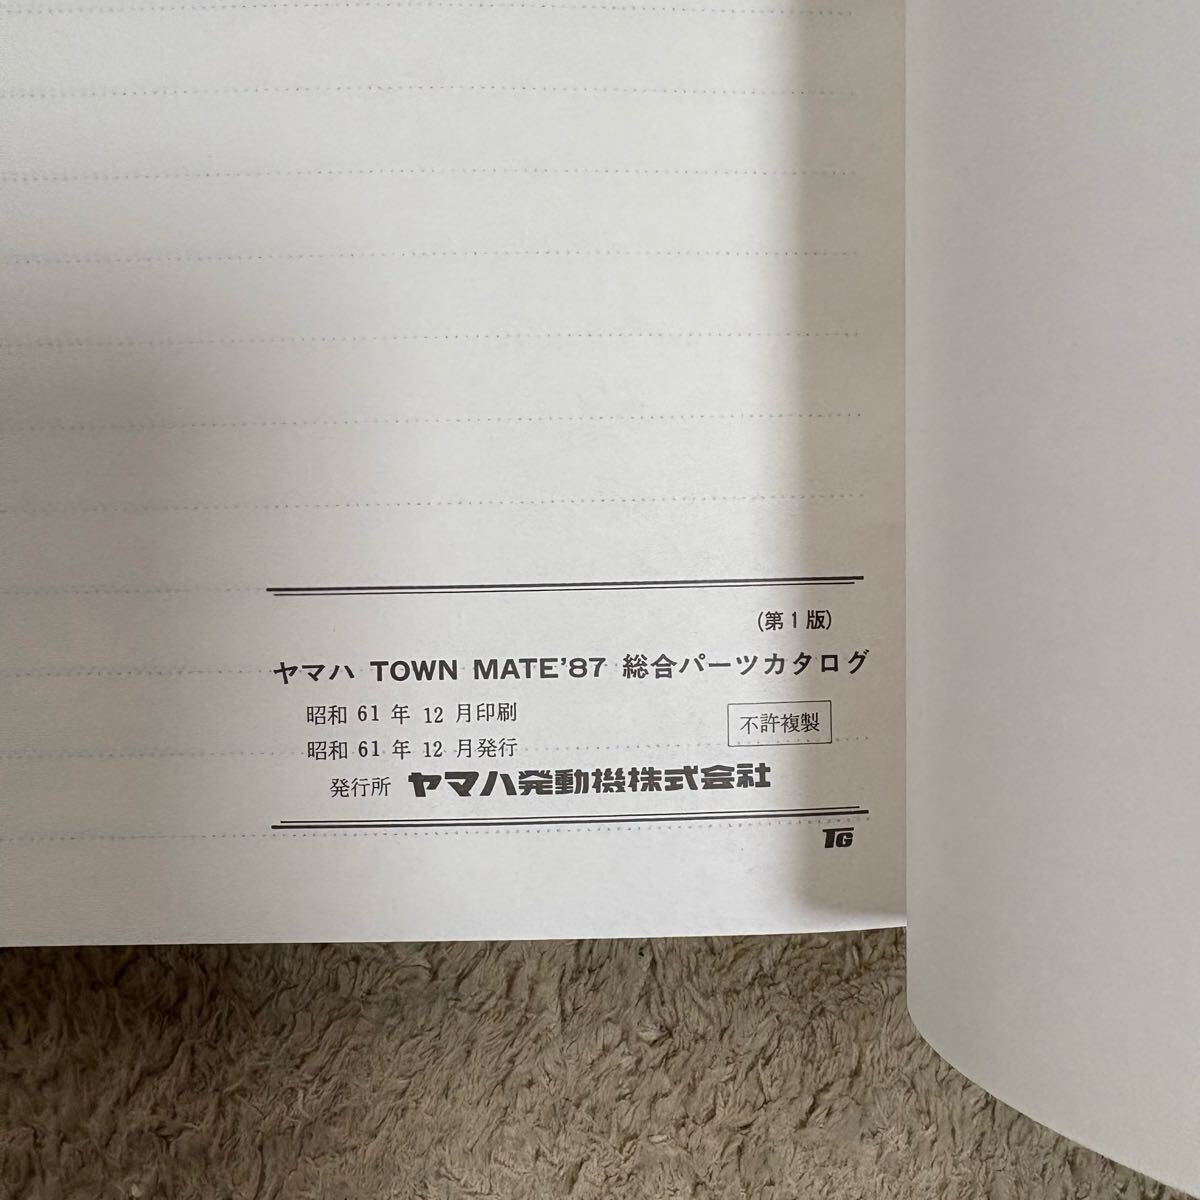 (第1版)
ヤマハ TOWN MATE'87 総合パーツカタログ
昭和 61 年 12 月印刷
不許複製
昭和 61 年 12 月発行
発行所 ヤマハ発動機株式会社
TG